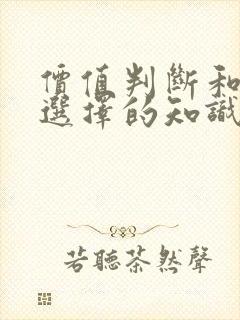 價值判斷和
選擇的知識
若聽茶然聲